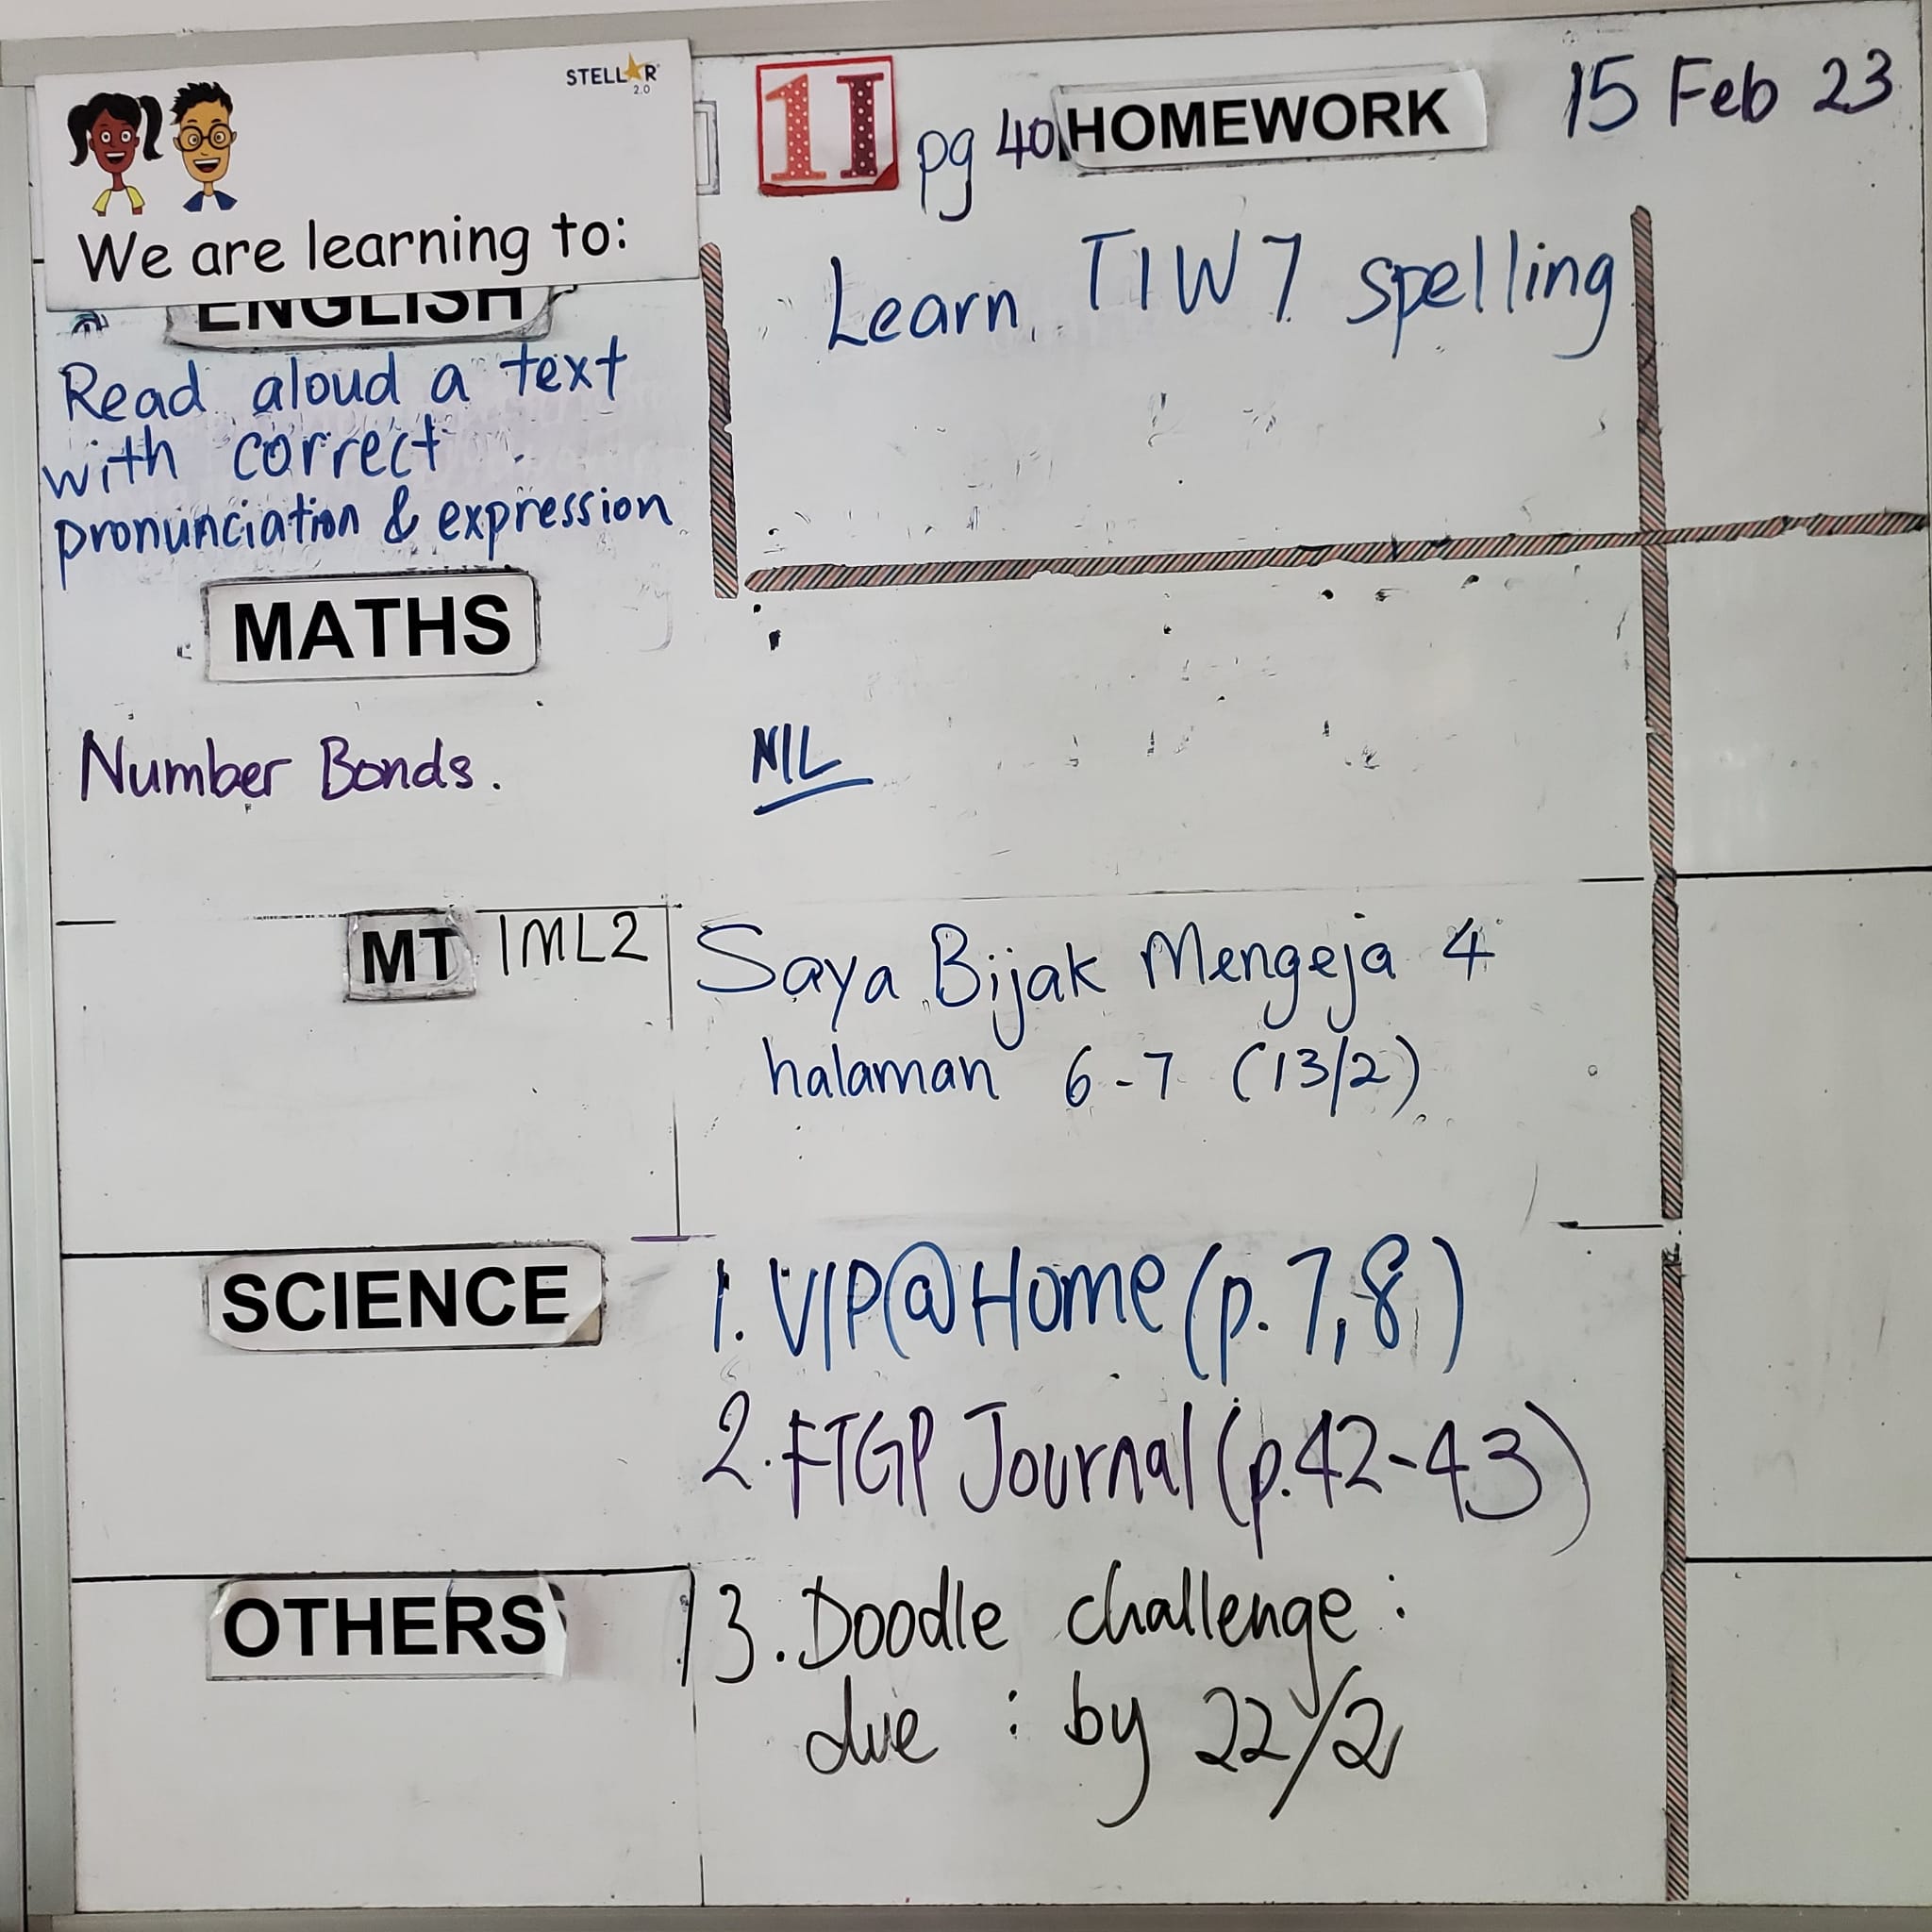 STELLAR 2.0
We are learning to:
1I pg 40 HOMEWORK 15 Feb 23
ENGLISH
Read aloud a text
with correct
pronunciation & expression
Learn T1W7 spelling
MATHS
Number Bonds.
NIL
MT 1ML2
Saya Bijak Mengeja 4
halaman 6-7 (13/2)
SCIENCE
1. VIP@Home (p. 7,8)
2. FTGP Journal (p.42-43)
OTHERS
3. Doodle challenge :
due : by 22/2